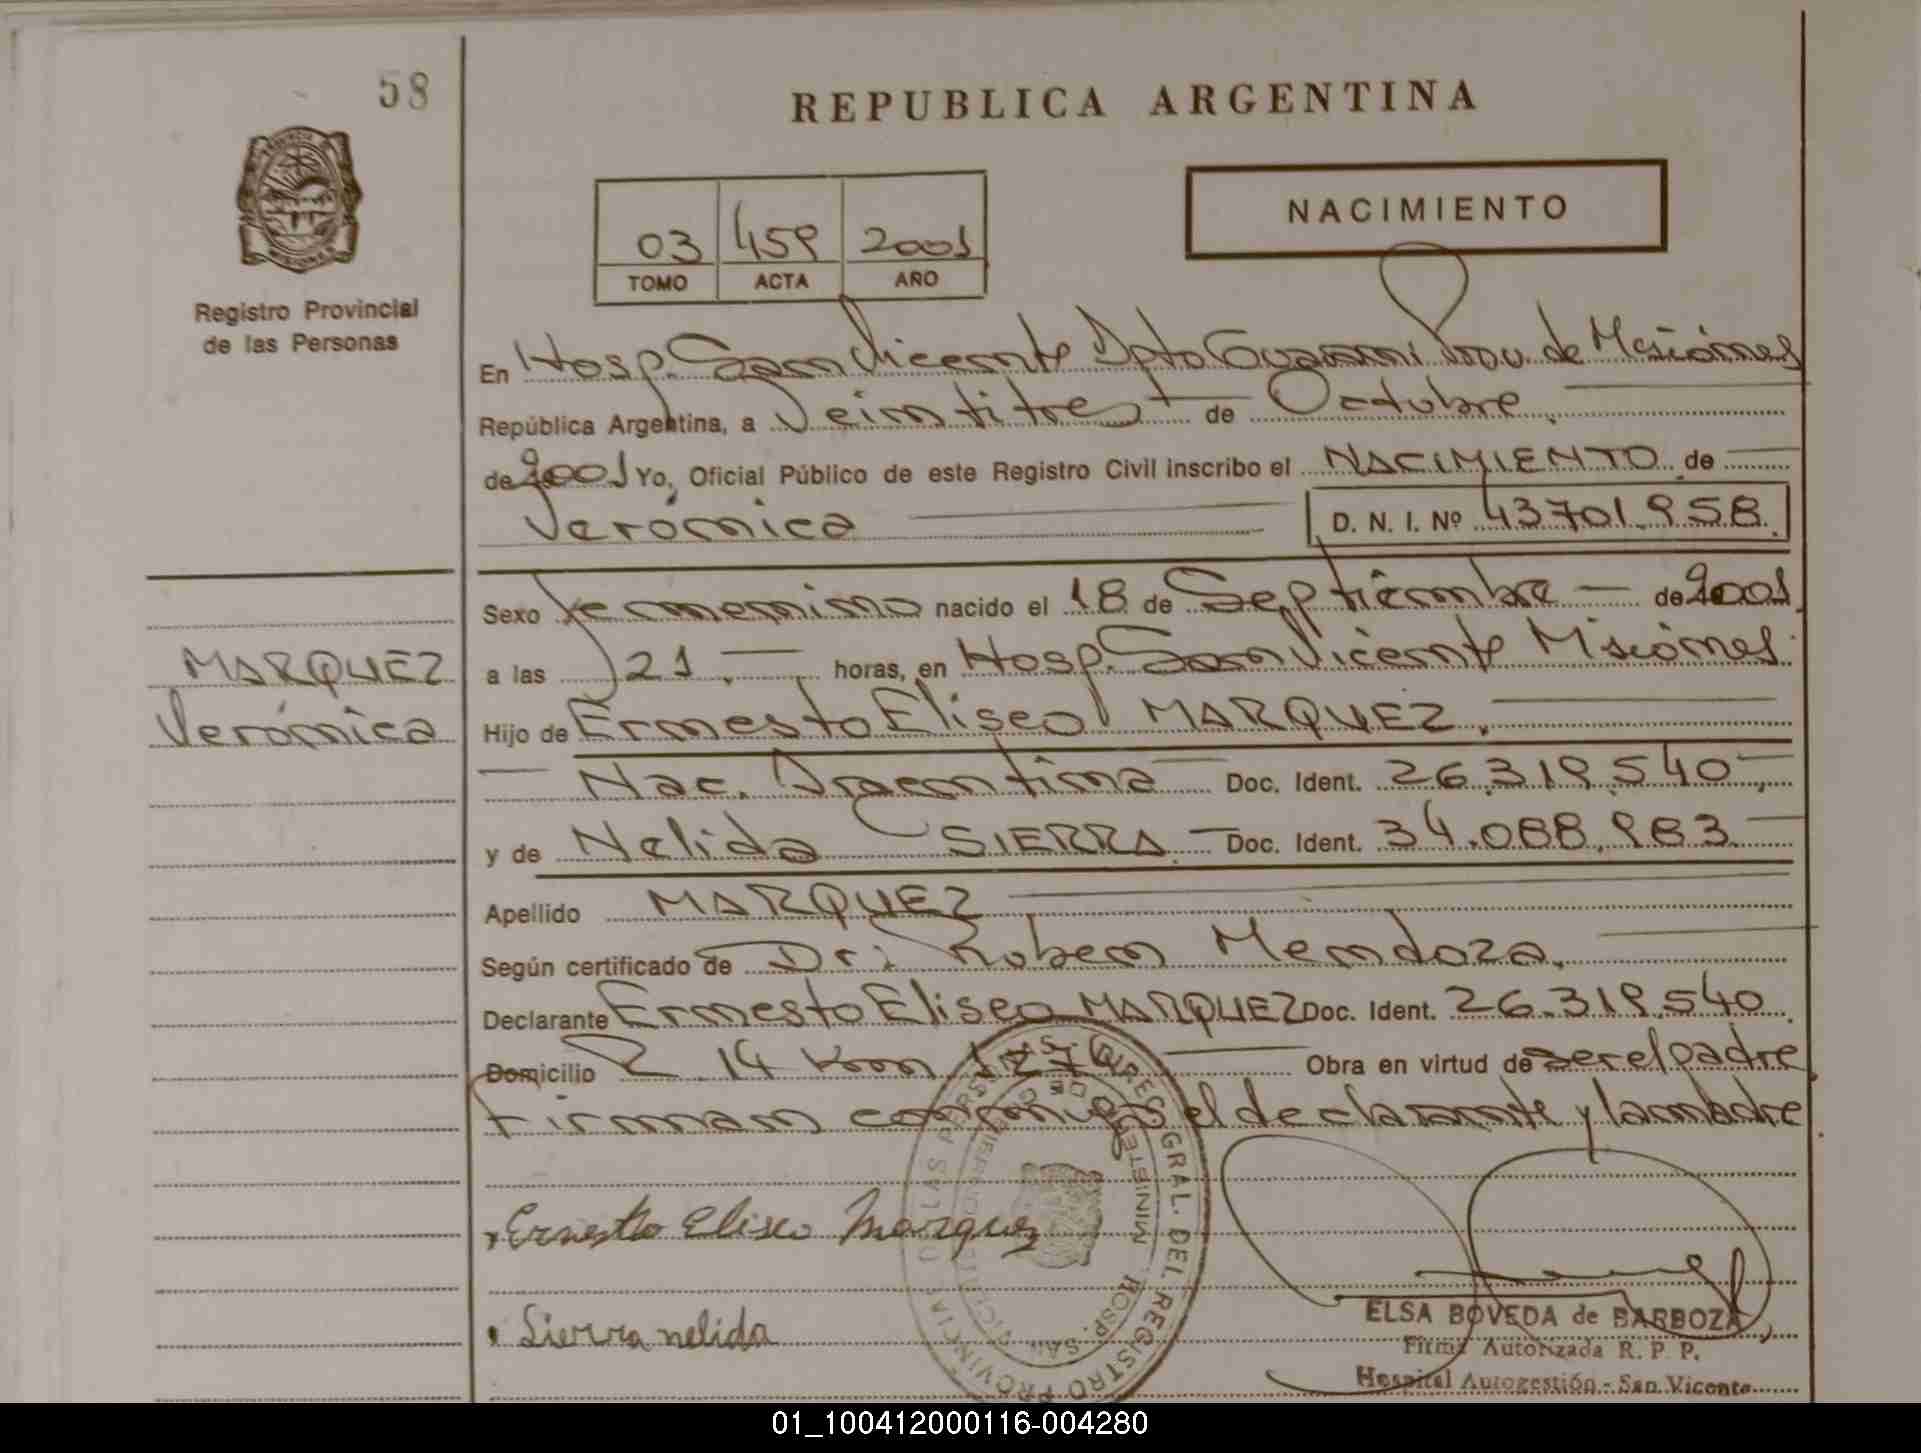 58
REPUBLICA ARGENTINA
NACIMIENTO
03 459 2001
TOMO ACTA AÑO
Registro Provincial
de las Personas
En Hosp. San Vicente Dpto Guarani Prov. de Misiones
República Argentina, a Veintitres de Octubre
de 2001 Yo, Oficial Público de este Registro Civil inscribo el NACIMIENTO de
Verónica D. N. I. Nº 43701.958
Sexo femenino nacido el 18 de Septiembre de 2001
a las 21. horas, en Hosp. San Vicente Misiones.
MARQUEZ
Verónica
Hijo de Ernesto Eliseo MARQUEZ.
Nac. Argentina Doc. Ident. 26.319.540
y de Nelida SIERRA. Doc. Ident. 34.088.983
Apellido MARQUEZ
Según certificado de Dr: Ruben Mendoza.
Declarante Ernesto Eliseo MARQUEZ Doc. Ident. 26.319.540
Domicilio 14 Km Obra en virtud de ser el padre
Firman conmigo el declarante y la madre
Ernesto Eliseo Marquez
Sierra nelida
DIREC. GRAL. DEL REGISTRO PROVINCIAL DE LAS PERSONAS
HOSP. SAN VICENTE
ELSA BOVEDA de BARBOZA
Firma Autorizada R. P. P.
Hospital Autogestión - San Vicente
01_100412000116-004280